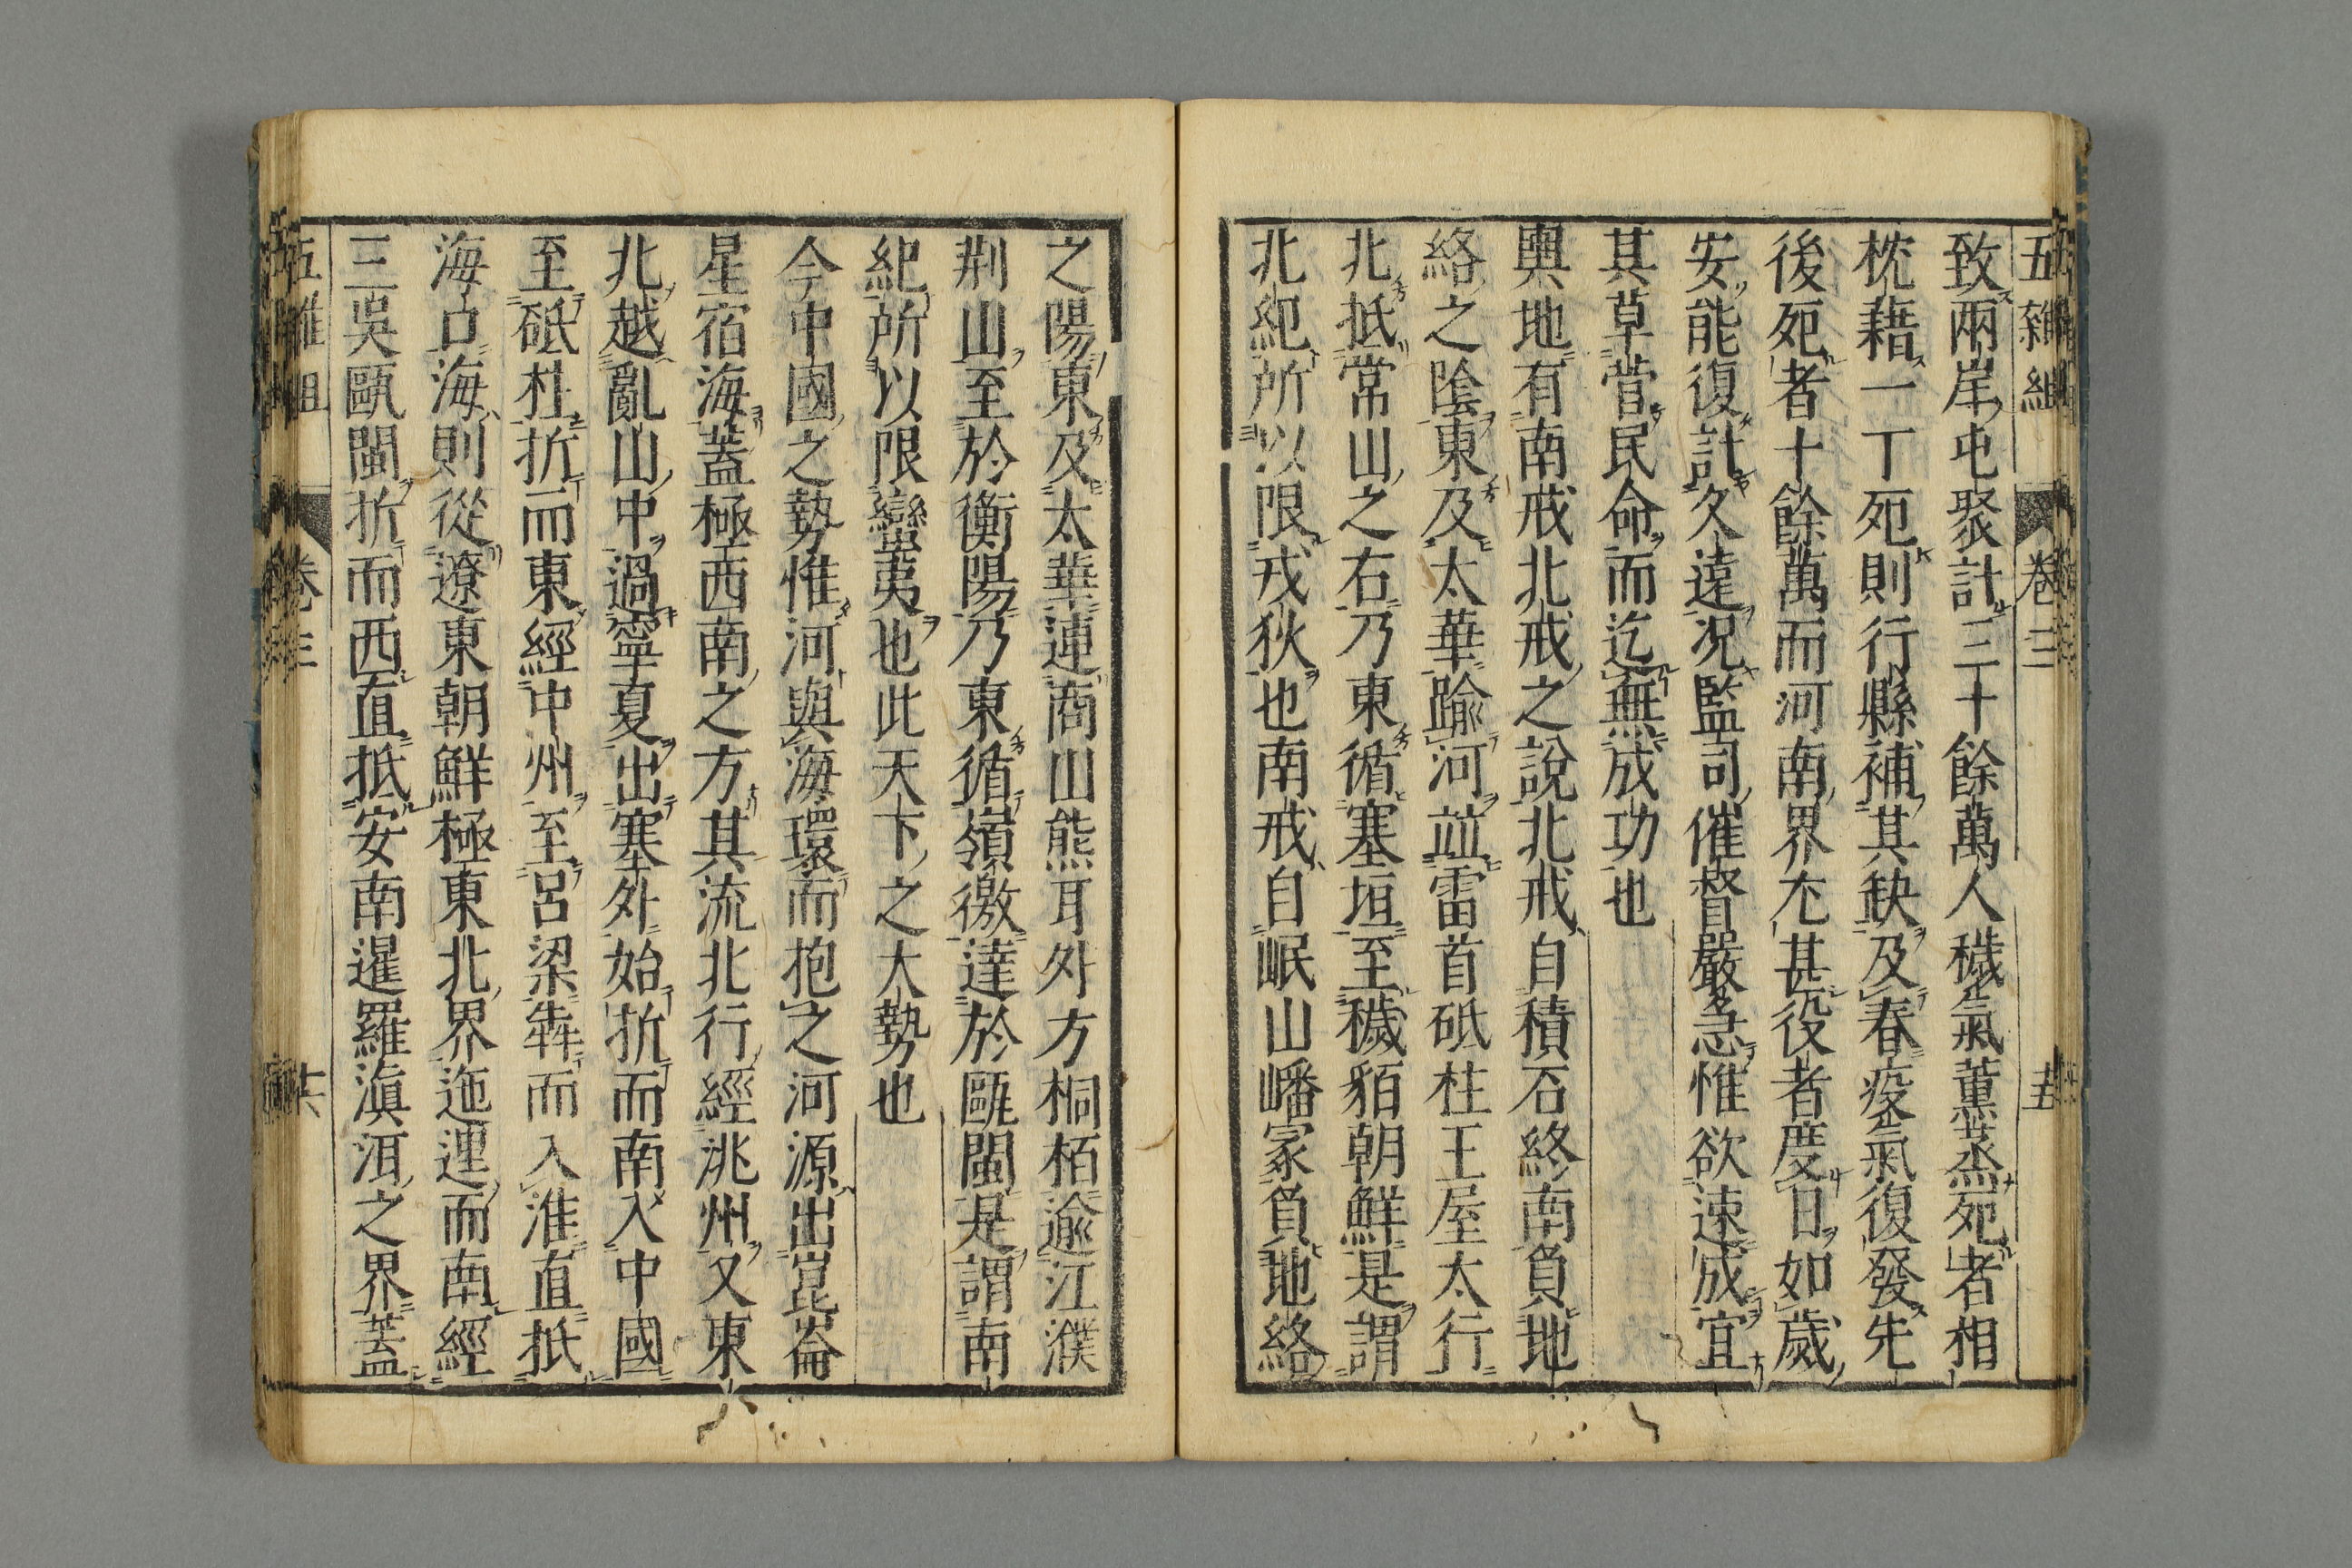 五雜組 卷三 五
致兩岸屯聚計三十餘萬人穢氣薰蒸死者相
枕藉一丁死則行縣補其缺及春疫氣復發先
後死者十餘萬而河南界尢甚役者度日如歲
安能復計久遠况監司催督嚴急惟欲速成宜
其草菅民命而迄無成功也
輿地有南戒北戒之說北戒自積石終南負地
絡之陰東及太華踰河竝雷首砥柱王屋太行
北抵常山之右乃東循塞垣至穢貊朝鮮是謂
北紀所以限戎狄也南戒自岷山嶓冢負地絡
之陽東及太華連商山熊耳外方桐栢逾江濮
荆山至於衡陽乃東循嶺徼達於甌閩是謂南
紀所以限蠻夷也此天下之大勢也
今中國之勢惟河與海環而抱之河源出崑崙
星宿海蓋極西南之方其流北行經洮州又東
北越亂山中過寧夏出塞外始折而南入中國
至砥柱折而東經中州至呂梁犇而入淮直抵
海口海則從遼東朝鮮極東北界迤邐而南經
三吳甌閩折而西直抵安南暹羅滇洱之界蓋
五雜組 卷三 六